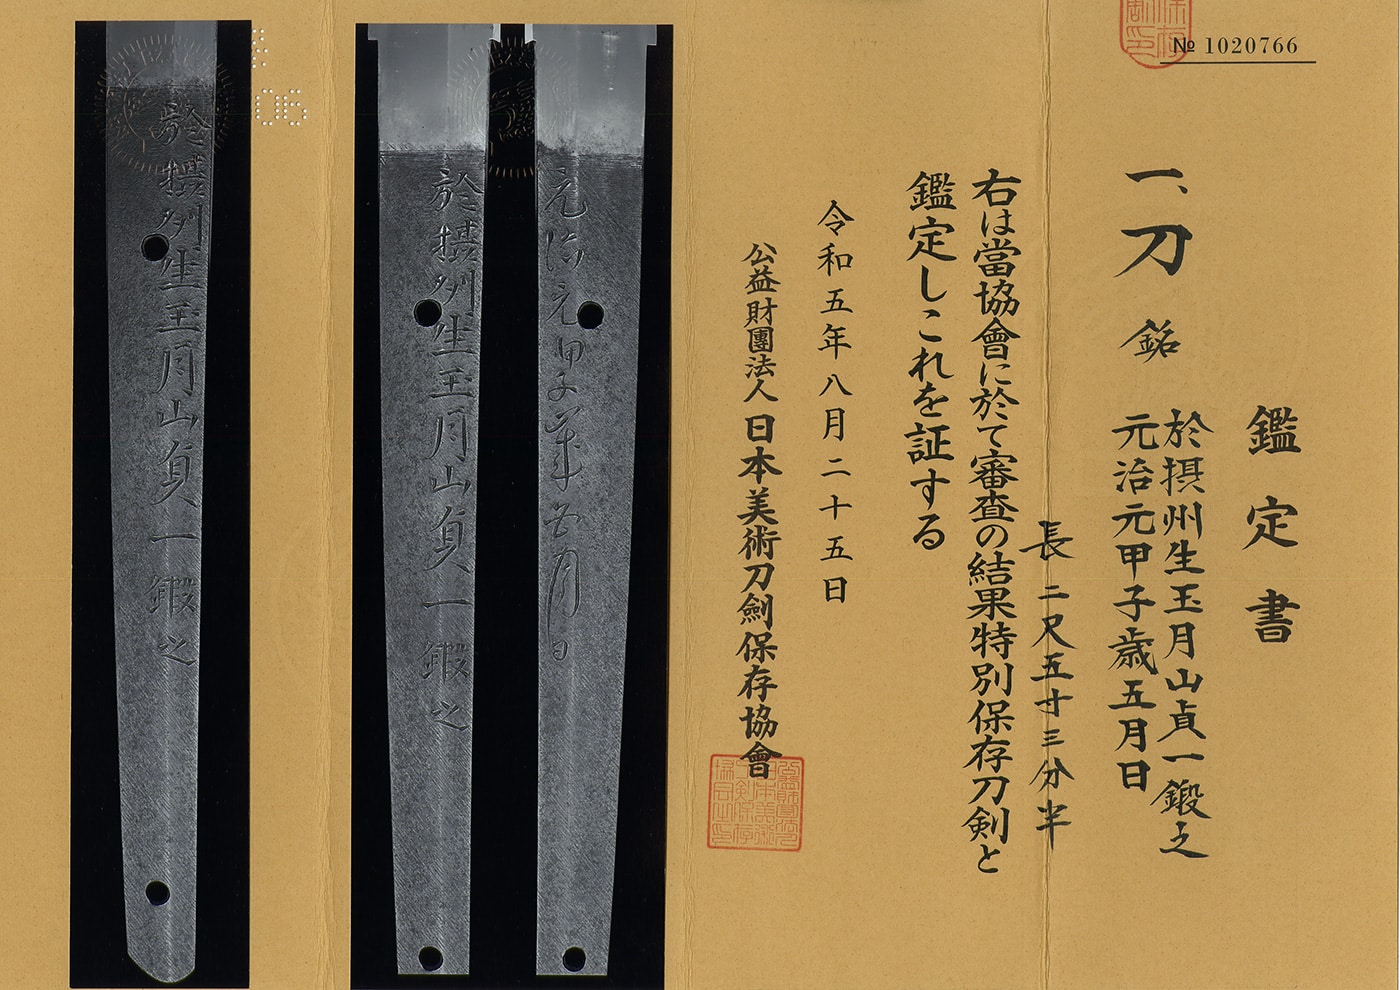 № 1020766
鑑定書
一、刀 銘
於摂州生玉月山貞一鍛之
元治元甲子歳五月日
長 二尺五寸三分半
右は當協會に於て審査の結果特別保存刀剣と
鑑定しこれを証する
令和五年八月二十五日
公益財團法人 日本美術刀劍保存協會
元治元甲子歳五月日
於摂州生玉月山貞一鍛之
於摂州生玉月山貞一鍛之
06